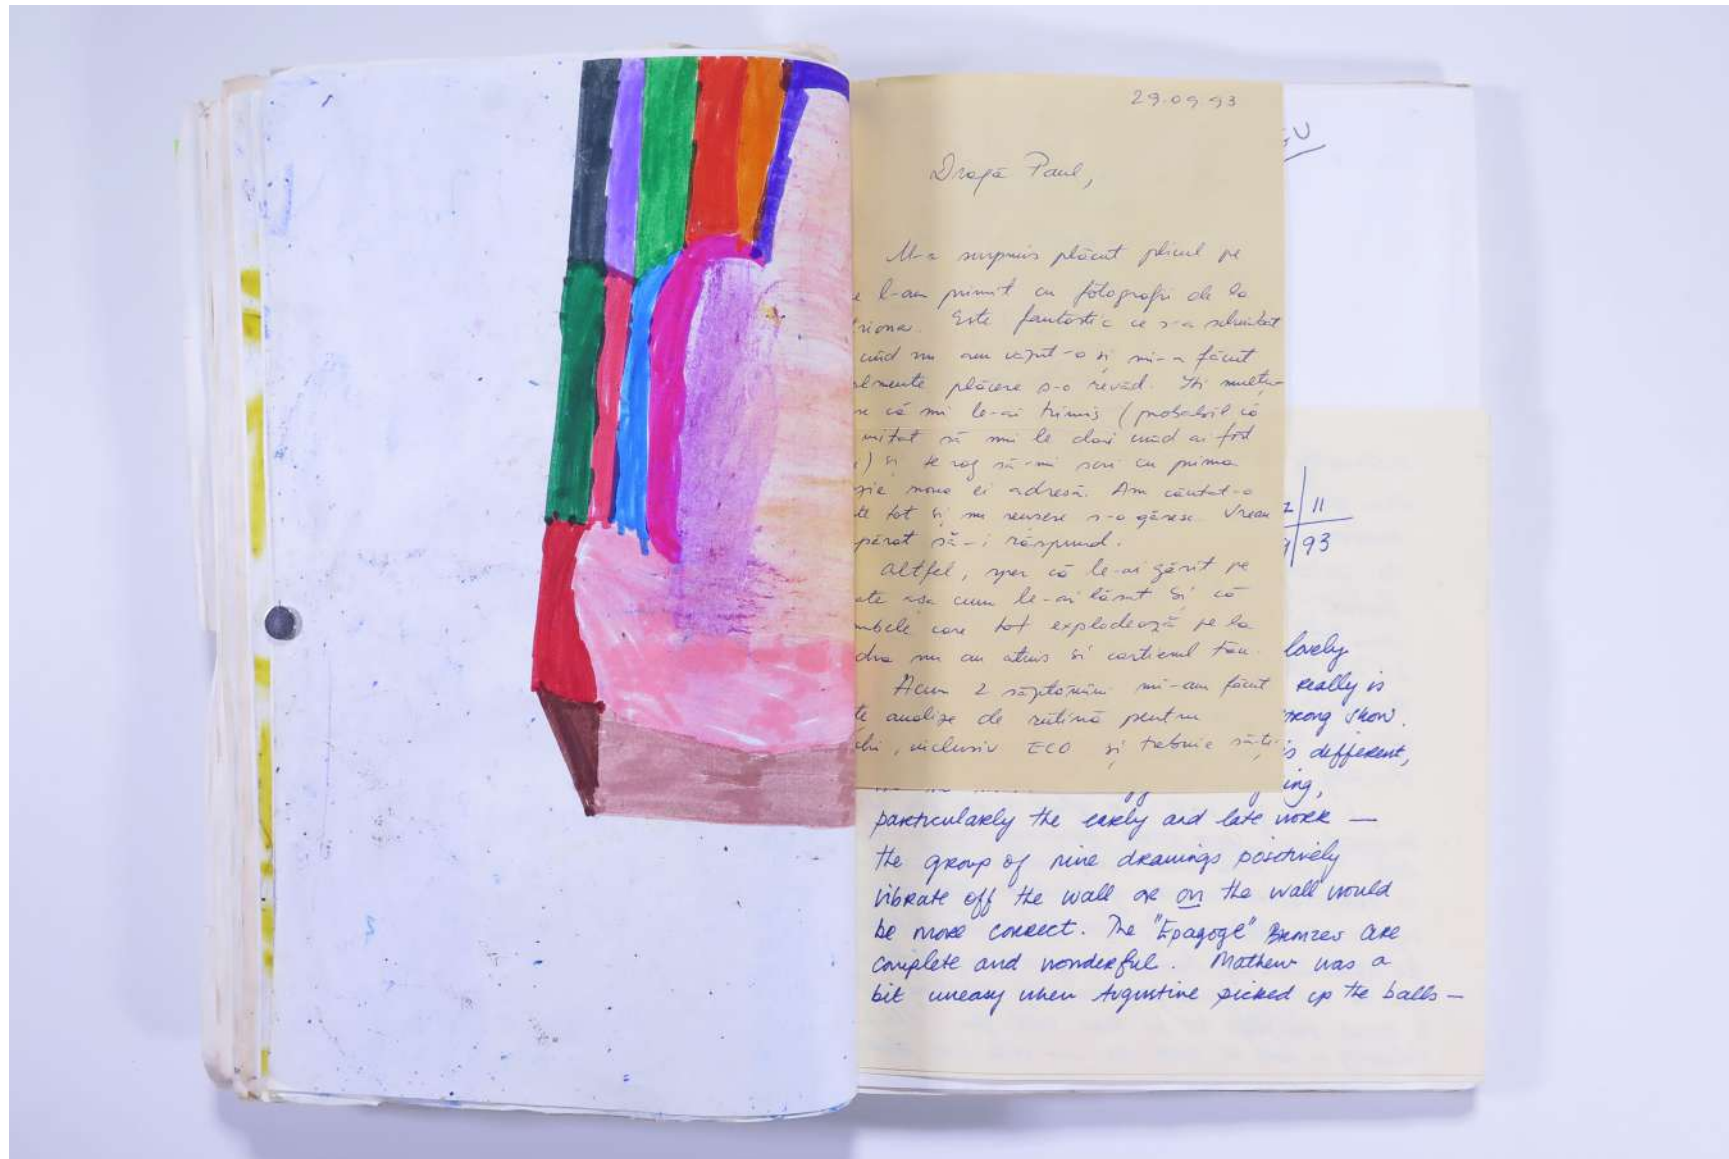 29.09.93
Dragă Paul,
M-a surprins plăcut plicul pe
l-am primit cu fotografii de la
Este fantastic ce s-a schimbat
când nu am văzut-o și mi-a făcut
plăcere s-o revăd. Iți mulțu-
că mi le-ai trimis (probabil că
uitat să mi le dai când ai fost
) și te rog să-mi scri cu prima
noua ei adresă. Am căutat-o
tot și nu reușesc s-o găsesc. Vreau
să-i răspund.
altfel, sper că le-ai găsit pe
așa cum le-ai lăsat și că
care tot explodează pe la
nu au atins și cartierul tău.
Acum 2 săptămâni mi-am făcut
analize de rutină pentru
, inclusiv ECO și trebuie să-ți
U
2 11
93
lovely
really is
strong show.
is different,
ing,
particularly the early and late work —
the group of nine drawings positively
vibrate off the wall or on the wall would
be more correct. The "Epagogé" Bronzes are
complete and wonderful. Mathew was a
bit uneasy when Augustine picked up the balls —